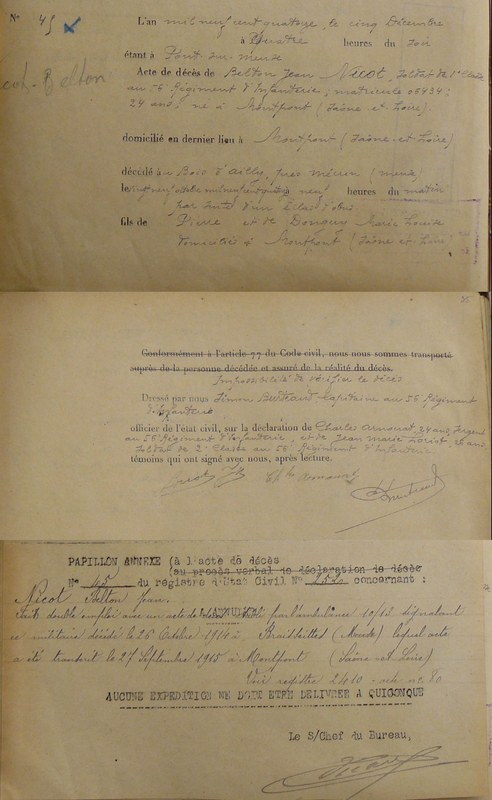 N° 45
L'an mil neuf cent quatorze, le cinq Décembre
à Quatre heures du soir
étant à Pont sur Meuse
Acte de décès de Belton Jean Nicot, soldat de 1e Classe
au 56 Régiment d'Infanterie; matricule 05434;
24 ans, né à Montpont (Saône et Loire).
domicilié en dernier lieu à Montpont (Saône et Loire)
décédé au Bois d'Ailly, près (Meuse)
le mil neuf cent neuf heures du matin
par suite d'un éclat d'obus.
fils de Pierre et de Donguy Marie Louise
domiciliés à Montpont (Saône et Loire)
Conformément à l'article 77 du Code civil, nous nous sommes transporté
auprès de la personne décédée et assuré de la réalité du décès.
Impossibilité de vérifier le décès
Dressé par nous Simon Bertrand Capitaine au 56 Régiment
d'Infanterie
officier de l'état civil, sur la déclaration de Charles Arnoust, 24 ans, sergent
au 56 Régiment d'Infanterie, et de Jean Marie 26 ans,
soldat de 2e Classe au 56 Régiment d'Infanterie
témoins qui ont signé avec nous, après lecture.
PAPILLON ANNEXE (à l'acte de décès
(au procès verbal de déclaration de décès
N° 45 du registre d'Etat Civil N° concernant :
Nicot Belton Jean.
Fait double emploi avec un acte de par l'ambulance 10/15 signalant
ce militaire décédé le 26 Octobre 1914 à (Meuse) lequel acte
a été transcrit le 27 Septembre 1915 à Montpont (Saône et Loire)
Voir registre 2410 - acte no 80
AUCUNE EXPEDITION NE DOIT ETRE DELIVREE A QUICONQUE
Le S/Chef du Bureau,